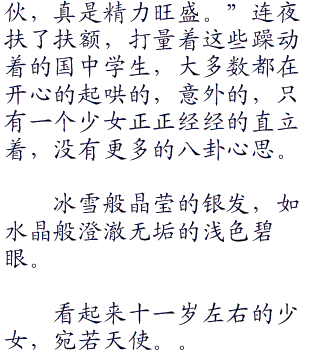 伙，真是精力旺盛。”连夜
扶了扶额，打量着这些躁动
着的国中学生，大多数都在
开心的起哄的，意外的，只
有一个少女正正经经的直立
着，没有更多的八卦心思。
冰雪般晶莹的银发，如
水晶般澄澈无垢的浅色碧
眼。
看起来十一岁左右的少
女，宛若天使。。